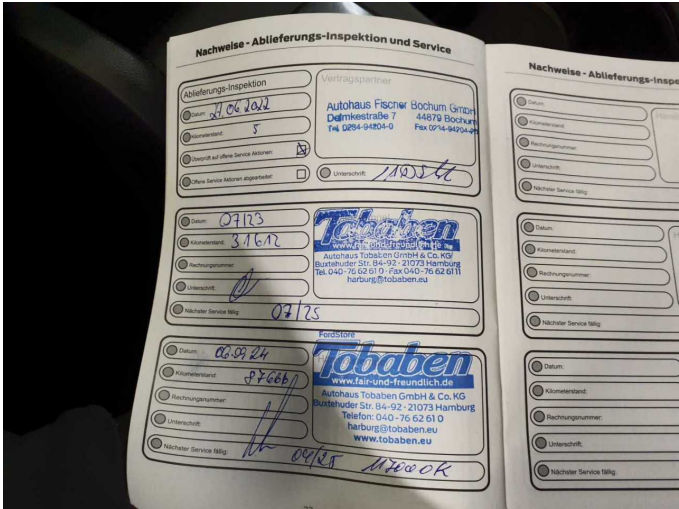 Nachweise - Ablieferungs-Inspektion und Service
Ablieferungs-Inspektion
Datum: 27.06.2022
Kilometerstand: 5
Überprüft auf offene Service Aktionen:
Offene Service Aktionen abgearbeitet:
Vertragspartner
Autohaus Fischer Bochum GmbH
Delmkestraße 7 44879 Bochum
Tel. 0234-94204-0 Fax 0234-94204-
Unterschrift:
Datum: 07/23
Kilometerstand: 31612
Rechnungsnummer:
Unterschrift:
Nächster Service fällig: 07/25
Tobaben
www.fair-und-freundlich.de
Autohaus Tobaben GmbH & Co. KG
Buxtehuder Str. 84-92 · 21073 Hamburg
Tel. 040-76 62 61 0 · Fax 040-76 62 61 11
harburg@tobaben.eu
Datum:
Kilometerstand: 87666
Rechnungsnummer:
Unterschrift:
Nächster Service fällig: 117000K
FordStore
Tobaben
www.fair-und-freundlich.de
Autohaus Tobaben GmbH & Co. KG
Buxtehuder Str. 84-92 · 21073 Hamburg
Telefon: 040-76 62 61 0
harburg@tobaben.eu
www.tobaben.eu
Nachweise - Ablieferungs-Inspe
Datum:
Kilometerstand:
Rechnungsnummer:
Unterschrift:
Nächster Service fällig:
Datum:
Kilometerstand:
Rechnungsnummer:
Unterschrift:
Nächster Service fällig:
Datum:
Kilometerstand:
Rechnungsnummer:
Unterschrift:
Nächster Service fällig: